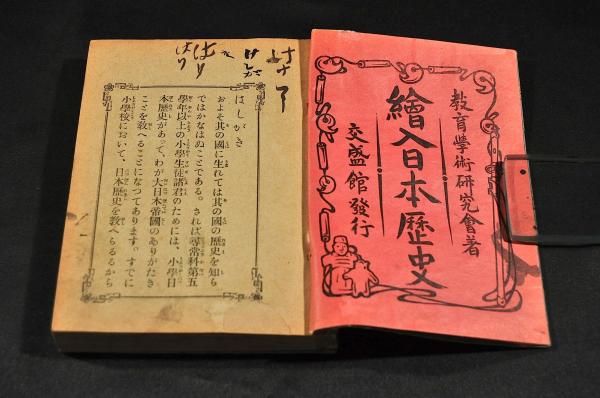 教育學術研究會著
繪入日本歷史
交盛館發行
はしがき
およそ其の國に生れては其の國の歷史を知ら
ではかなはぬことである。されば尋常科第五
學年以上の小學生徒諸君のためには、小學日
本歷史があつて、わが大日本帝國のありがたき
ことを敎へることになつてあります。すでに
小學校において、日本歷史を敎へらるるから
はり
はり